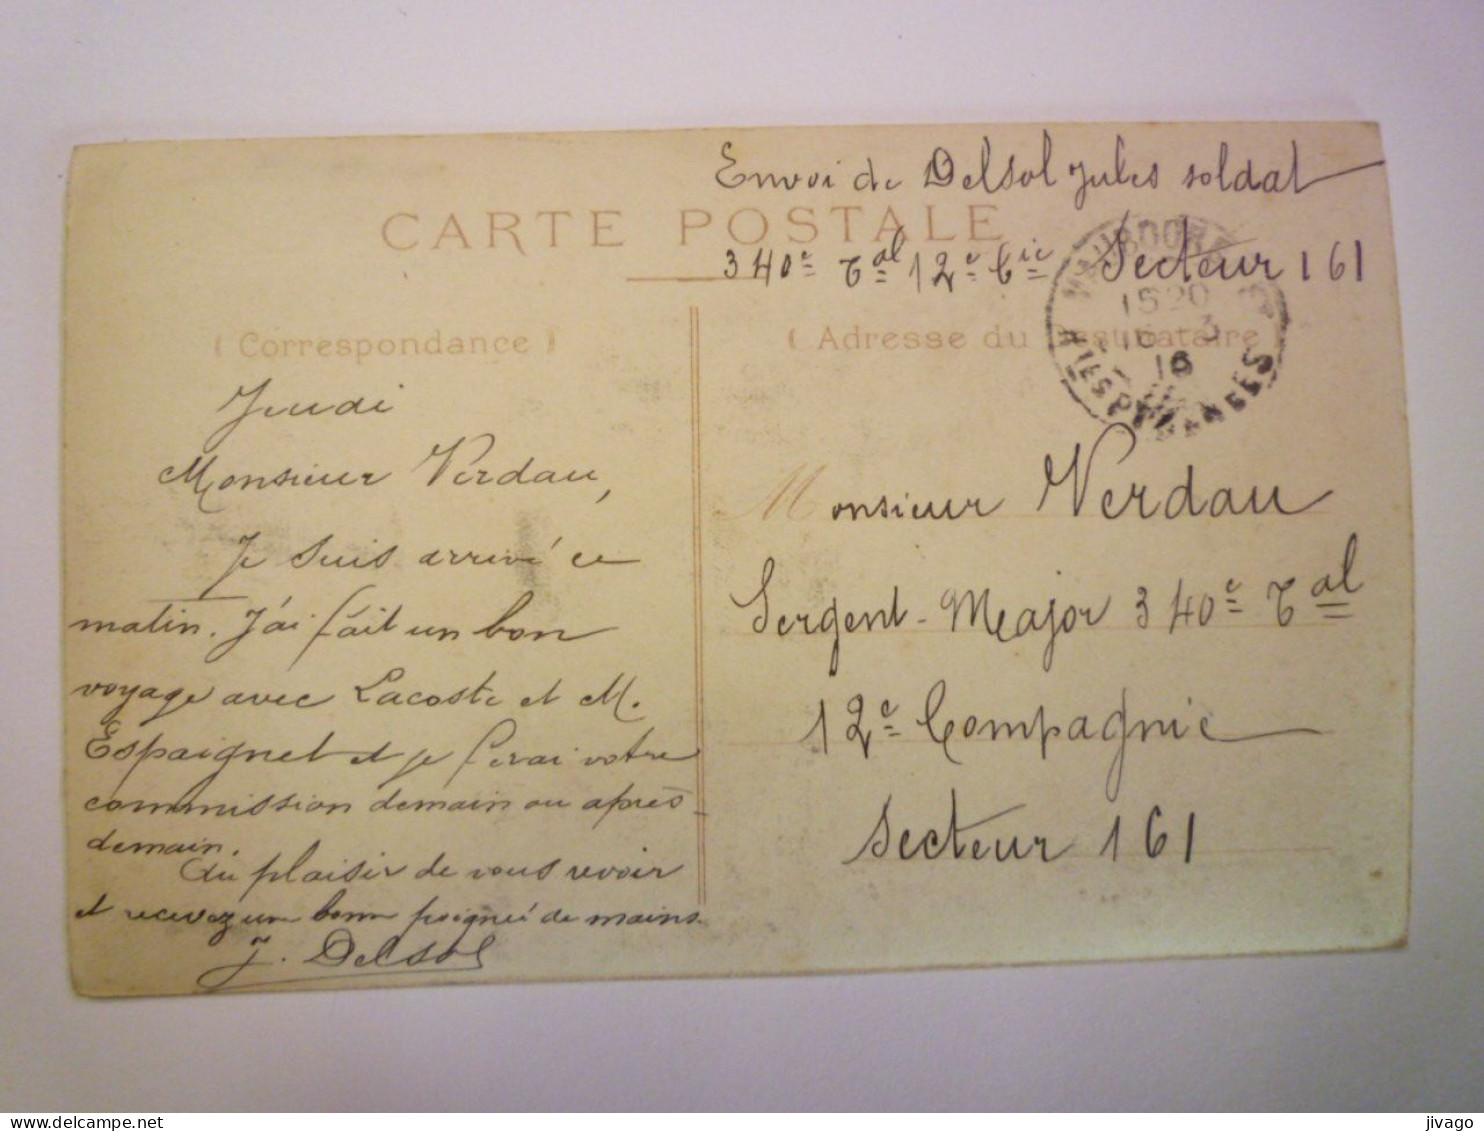 Envoi de Delsol Jules soldat
CARTE POSTALE
340e Tal 12e Cie Secteur 161
MAUBOURGUET
1520
16 3
16
HTES PYRENEES
( Correspondance )
( Adresse du Destinataire
Jeudi
Monsieur Verdau,
Je suis arrivé ce
matin. J'ai fait un bon
voyage avec Lacoste et M.
Espaignet et je ferai votre
commission demain ou après-
demain.
Au plaisir de vous revoir
et recevez une bonne poignée de mains.
J. Delsol
Monsieur Verdau
Sergent-Major 340e Tal
12e Compagnie
Secteur 161
jivago